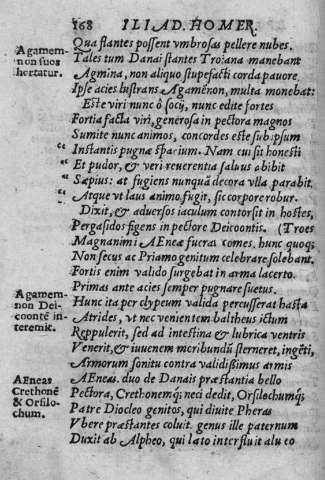 168 ILIAD. HOMER.
Qua flantes possent vmbrosas pellere nubes,
Agamem-
non suos
hortatur.
Tales tum Danai stantes Troiana manebant
Agmina, non aliquo stupefacti corda pauore.
Ipse acies lustrans Agamēnon, multa monebat:
Este viri nunc ô socij, nunc edite fortes
Fortia facta viri, generosa in pectora magnos
Sumite nunc animos, concordes este sub ipsum
“ Instantis pugnæ spacium. Nam cui sit honesti
“ Et pudor, & veri reuerentia saluus abibit
“ Sæpius: at fugiens nunquā decora vlla parabit.
“ Atque vt laus animo fugit, sic corpore robur.
Dixit, & aduersos iaculum contorsit in hostes,
Pergasidos figens in pectore Deicoontis. (Troes
Magnanimi AEneæ fueras comes. hunc quoq;
Non secus ac Priamogenitum celebrare solebant.
Fortis enim valido surgebat in arma lacerto.
Primas ante acies semper pugnare suetus.
Agamem-
non Dei-
coontē in-
teremit.
Hunc ita per clypeum valida percusserat hasta
Atrides, vt nec venientem baltheus ictum
Reppulerit, sed ad intestina & lubrica ventris
Venerit, & iuuenem moribundū sterneret, ingēti,
Armorum sonitu contra validissimus armis
AEneas
Crethonē
& Orsilo-
chum.
AEneas. duo de Danais præstantia bello
Pectora, Crethonemq; neci dedit, Orsilochumq;
Patre Diocleo genitos, qui diuite Pheras
Vbere præstantes coluit. genus ille paternum
Duxit ab Alpheo, qui lato interfluit alu eo